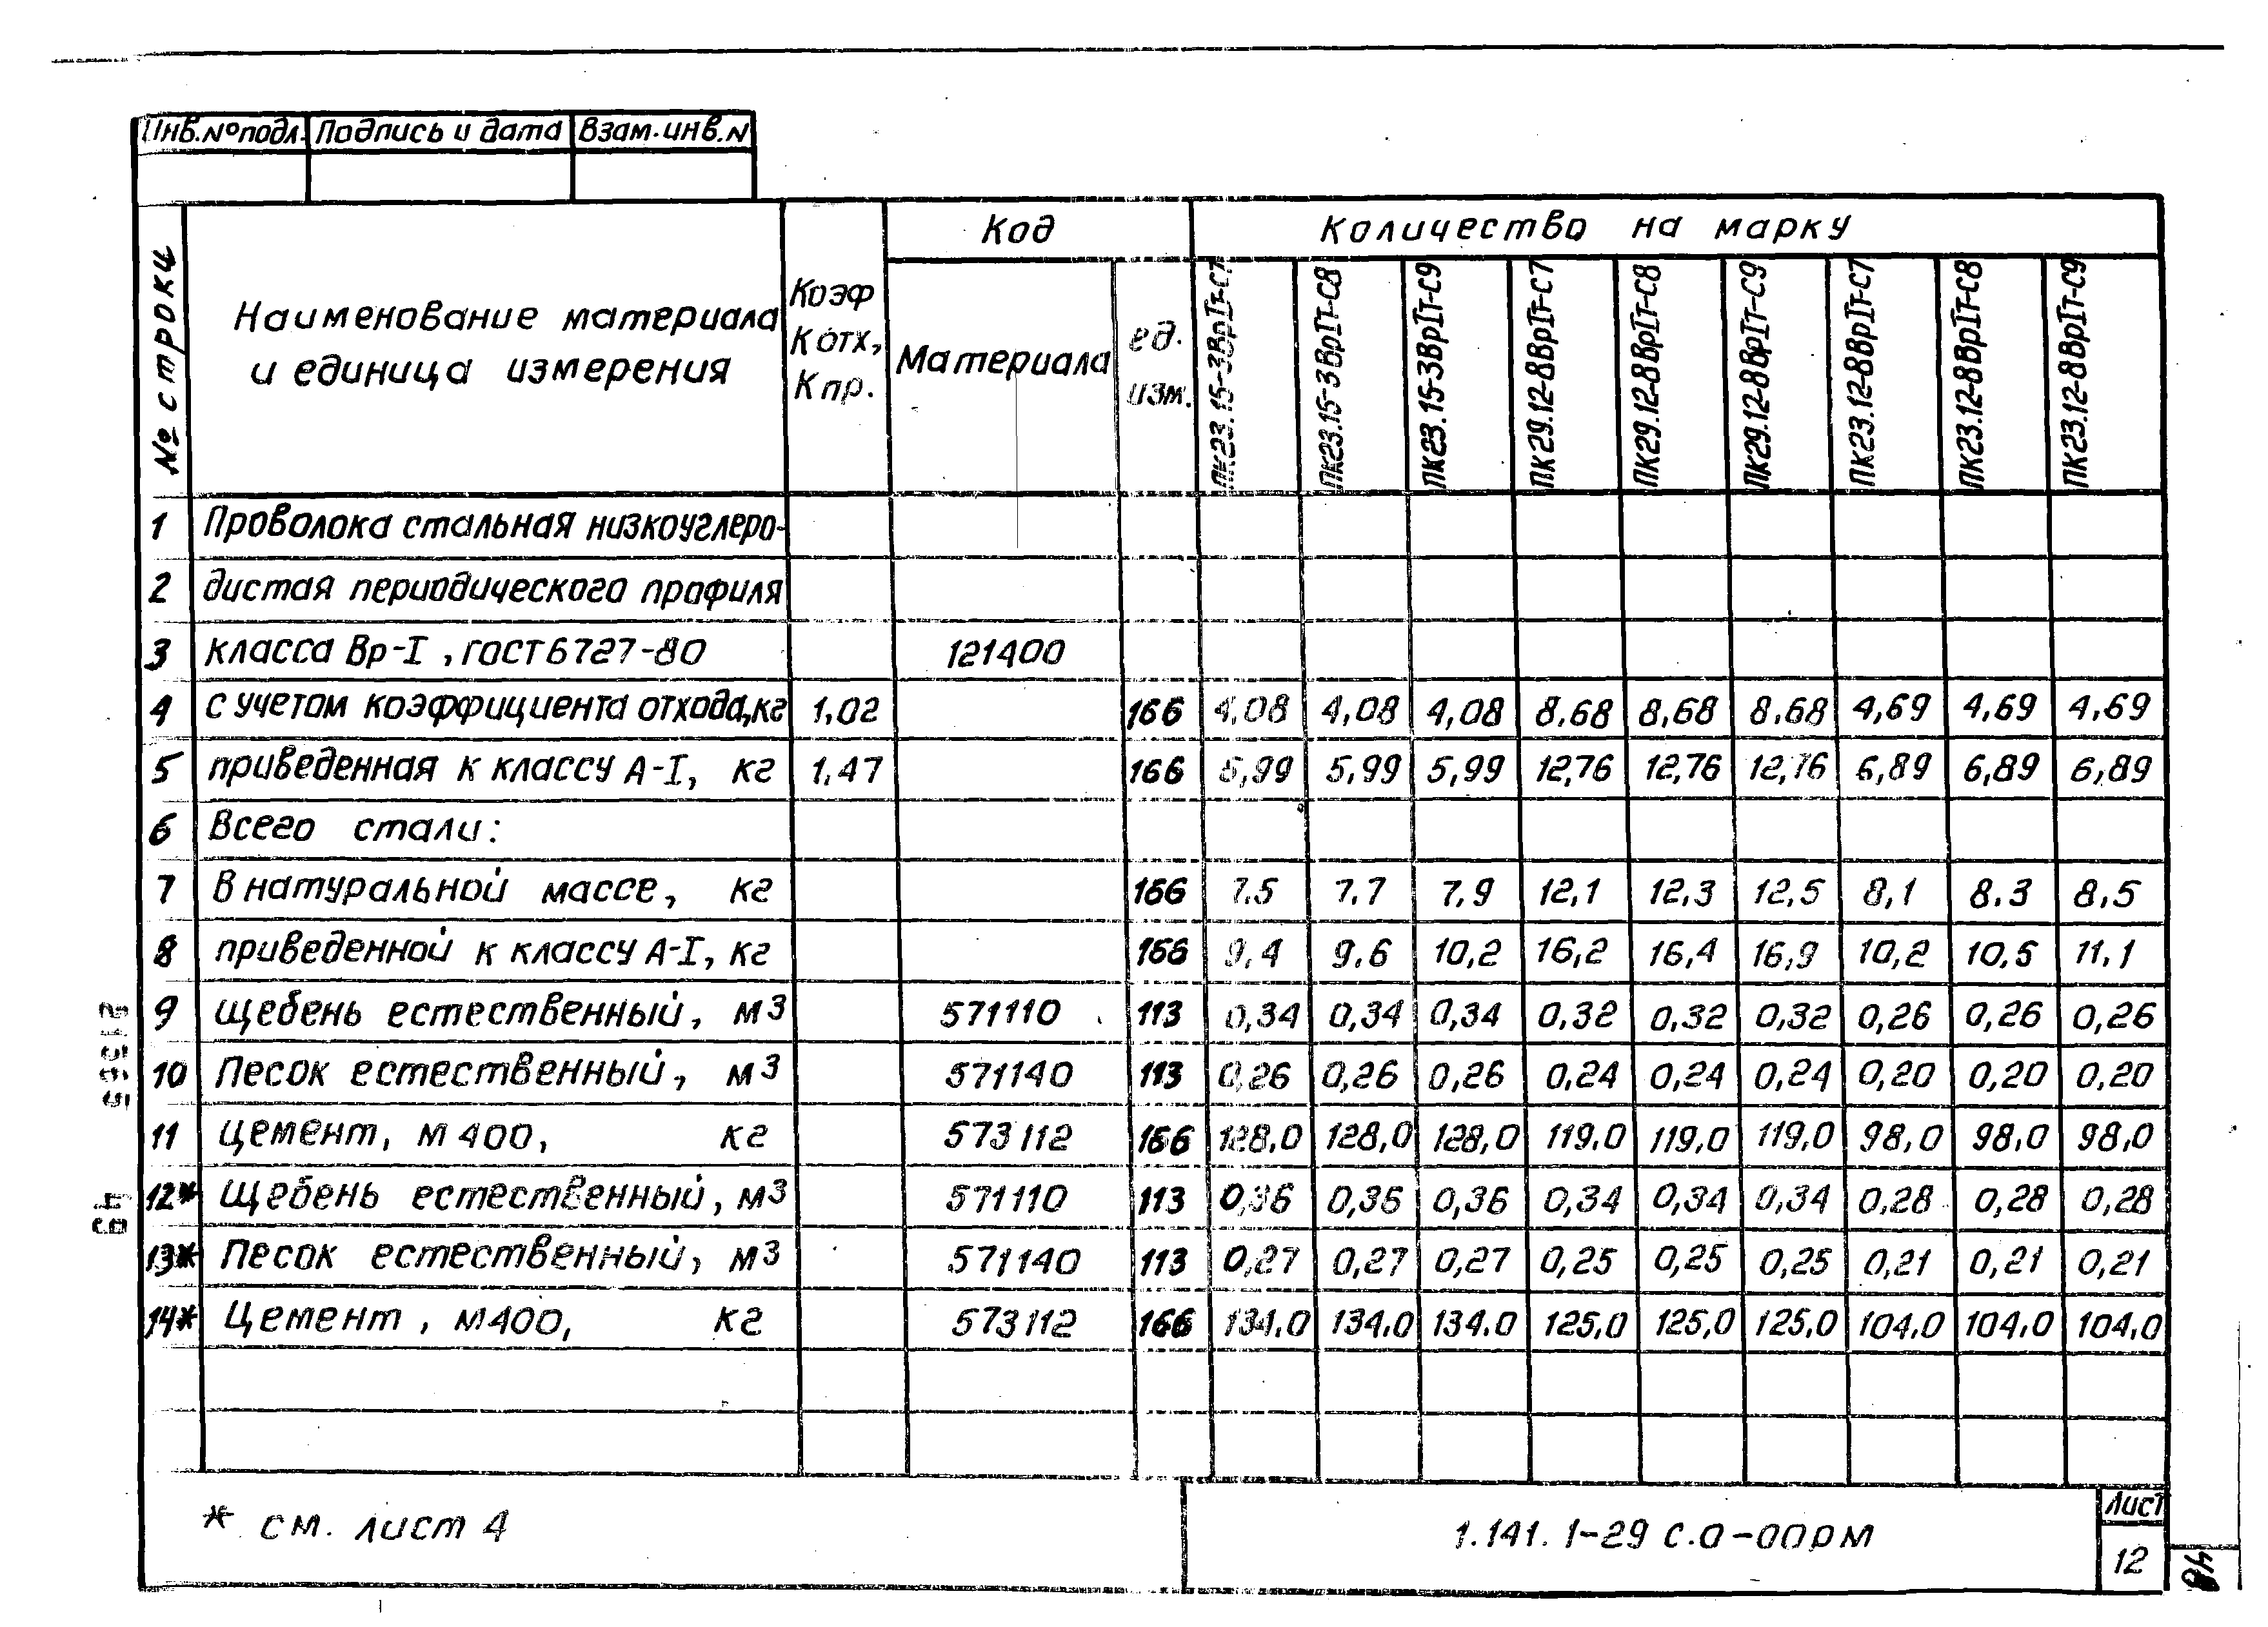 Инв.№подл. Подпись и дата Взам.инв.N
№ строки
Наименование материала
и единица измерения
Коэф
К отх,
К пр.
Код
Материала
ед.
изм.
Количество на марку
ПК23.15-3ВрIт-С7
ПК23.15-3ВрIт-С8
ПК23.15-3ВрIт-С9
ПК29.12-8ВрIт-С7
ПК29.12-8ВрIт-С8
ПК29.12-8ВрIт-С9
ПК23.12-8ВрIт-С7
ПК23.12-8ВрIт-С8
ПК23.12-8ВрIт-С9
1 Проволока стальная низкоуглеро-
2 дистая периодического профиля
3 класса Вр-I, ГОСТ 6727-80 121400
4 с учетом коэффициента отхода,кг 1,02 166 4,08 4,08 4,08 8.68 8,68 8.68 4,69 4,69 4,69
5 приведенная к классу А-I, кг 1,47 166 5,99 5,99 5,99 12,76 12,76 12,76 6,89 6,89 6,89
6 Всего стали:
7 В натуральной массе, кг 166 7.5 7.7 7.9 12,1 12,3 12,5 8,1 8.3 8,5
8 приведенной к классу А-I, кг 166 9,4 9.6 10,2 16,2 16,4 16,9 10,2 10,5 11,1
9 щебень естественный, м3 571110 113 0,34 0,34 0,34 0,32 0,32 0,32 0,26 0,26 0,26
10 Песок естественный, м3 571140 113 0,26 0,26 0,26 0,24 0,24 0,24 0,20 0,20 0,20
11 цемент, М 400, кг 573112 166 128,0 128,0 128,0 119,0 119,0 119,0 98,0 98,0 98,0
12* Щебень естественный, м3 571110 113 0,36 0,36 0,36 0,34 0,34 0,34 0,28 0,28 0,28
13* Песок естественный, м3 571140 113 0,27 0,27 0,27 0,25 0,25 0,25 0,21 0,21 0,21
14* Цемент, М400, кг 573112 166 134,0 134,0 134,0 125,0 125,0 125,0 104,0 104,0 104,0
* см. лист 4
1.141.1-29 с.0-00рм
Лист
12